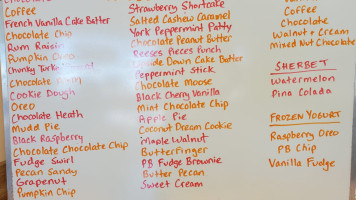 Coffee
French Vanilla Cake Butter
Chocolate Chip
Rum Raisin
Pumpkin Oreo
Chunky
Chocolate
Cookie Dough
Oreo
Chocolate Heath
Mudd Pie
Black Raspberry
Chocolate Chocolate Chip
Fudge Swirl
Pecan Sandy
Grapenut
Pumpkin Chip
Strawberry Shortcake
Salted Cashew Caramel
York Peppermint Patty
Chocolate Peanut Butter
Reeses Pieces Punch
Upside Down Cake Batter
Peppermint Stick
Chocolate Moose
Black Cherry Vanilla
Mint Chocolate Chip
Apple Pie
Coconut Dream Cookie
Maple Walnut
ButterFinger
PB Fudge Brownie
Butter Pecan
Sweet Cream
Coffee
Chocolate
Walnut & Cream
Mixed Nut Chocolate
SHERBET
Watermelon
Pina Colada
FROZEN YOGURT
Raspberry Oreo
PB Chip
Vanilla Fudge